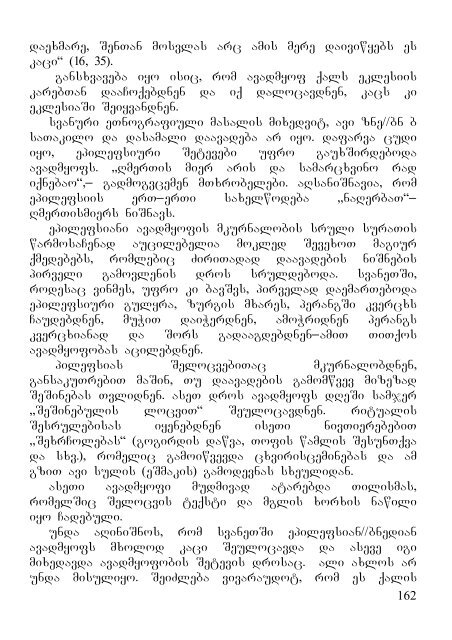 დაეხმარე, შენთან მოსვლას არც ამის მერე დაივიწყებს ეს
კაცი“ (16, 35).
განსხვავება იყო ისიც, რომ ავადმყოფ ქალს ეკლესიის
კარებთან დააჩოქებდნენ და იქ დალოცავდნენ, კაცს კი
ეკლესიაში შეიყვანდნენ.
სვანური ეთნოგრაფიული მასალის მიხედვით, ავი ზნე//ბნ ბ
სათაკილო და დასამალი დაავადება არ იყო. დაფარვა ცუდი
იყო, ეპილეფსიური შეტევები უფრო გაუხშირდებოდა
ავადმყოფს. „ღმერთის მიერ არის და სამარცხვინო რად
იქნებაო“,– გადმოგვცემენ მთხრობელები. აღსანიშნავია, რომ
ეპილეფსიის ერთ–ერთი სახელწოდება „ნაღერბათ“–
ღმერთისმიერს ნიშნავს.
ეპილეფსიანი ავადმყოფის მკურნალობის სრული სურათის
წარმოსაჩენად აუცილებელია მოკლედ შევეხოთ მაგიურ
ქმედებებს, რომლებიც ძირითადად დაავადების ნიშნების
პირველი გამოვლენის დროს სრულდებოდა. სვანეთში,
როდესაც ვინმეს, უფრო კი ბავშვს, პირველად დაემართებოდა
ეპილეფსიური გულყრა, ზურგის მხარეს, პერანგში კვერცხს
ჩაუდებდნენ, მუჭით დაიჭერდნენ, ამოჭრიდნენ პერანგს
კვერცხიანად და შორს გადააგდებდნენ–ამით თითქოს
ავადმყოფობას აცილებდნენ.
პილეფსიას შელოცვებითაც მკურნალობდნენ,
განსაკუთრებით მაშინ, თუ დაავადების გამომწვევ მიზეზად
შეშინებას თვლიდნენ. ასეთ დროს ავადმყოფს დღეში სამჯერ
„შეშინებულის ლოცვით“ შეულოცავდნენ. რიტუალის
შესრულებისას იყენებდნენ ისეთი ნივთიერებებით
„შეხრჩოლებას“ (გოგირდის დაწვა, თოფის წამლის შესუნთქვა
და სხვ.), რომელიც გამოიწვევდა ცხვირისცემინებას და ამ
გზით ავი სულის (ეშმაკის) გამოდევნას სხეულიდან.
ასეთი ავადმყოფი მუდმივად ატარებდა თილისმას,
რომელშიც შელოცვის ტექსტი და მგლის ხორხის ნაწილი
იყო ჩადებული.
უნდა აღინიშნოს, რომ სვანეთში ეპილეფსიან//ბნედიან
ავადმყოფს მხოლოდ კაცი შეულოცავდა და ასევე იგი
მიხედავდა ავადმყოფობის შეტევის დროსაც. ალი ახლოს არ
უნდა მისულიყო. შეიძლება ვივარაუდოთ, რომ ეს ქალის
162